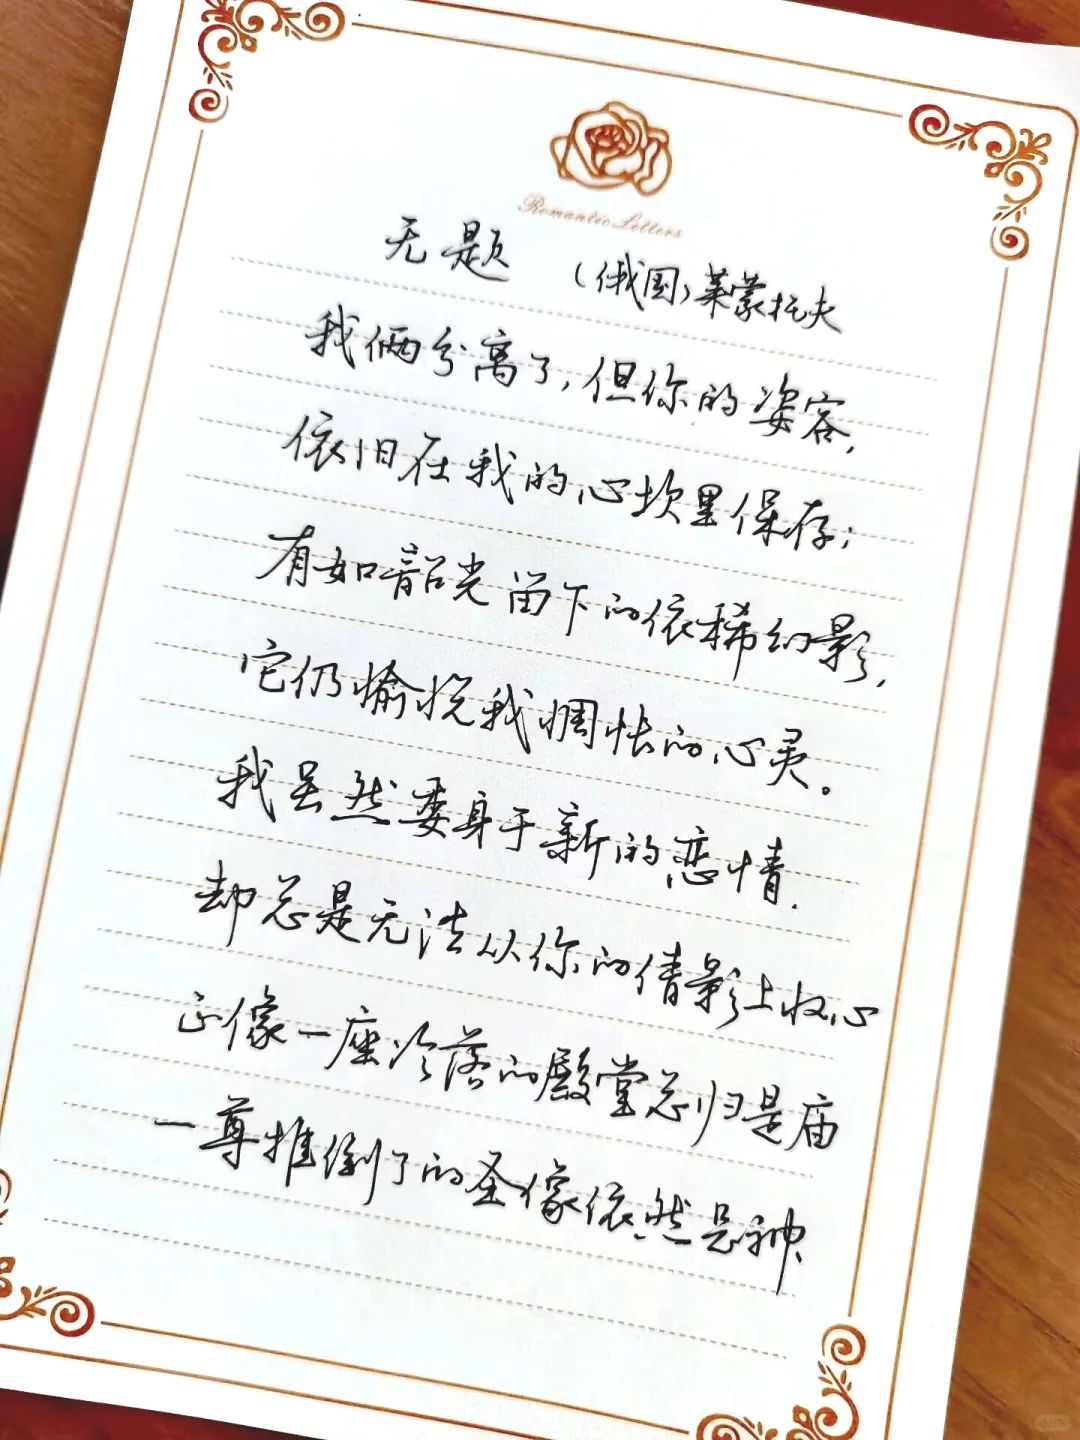 Romantic Letters
无题 (俄国)莱蒙托夫
我俩分离了,但你的姿容,
依旧在我的心坎里保存;
有如韶光留下的依稀幻影,
它仍愉悦我惆怅的心灵。
我虽然委身于新的恋情.
却总是无法从你的倩影上收心
正像一座冷落的殿堂总归是庙
一尊推倒了的圣像依然是神